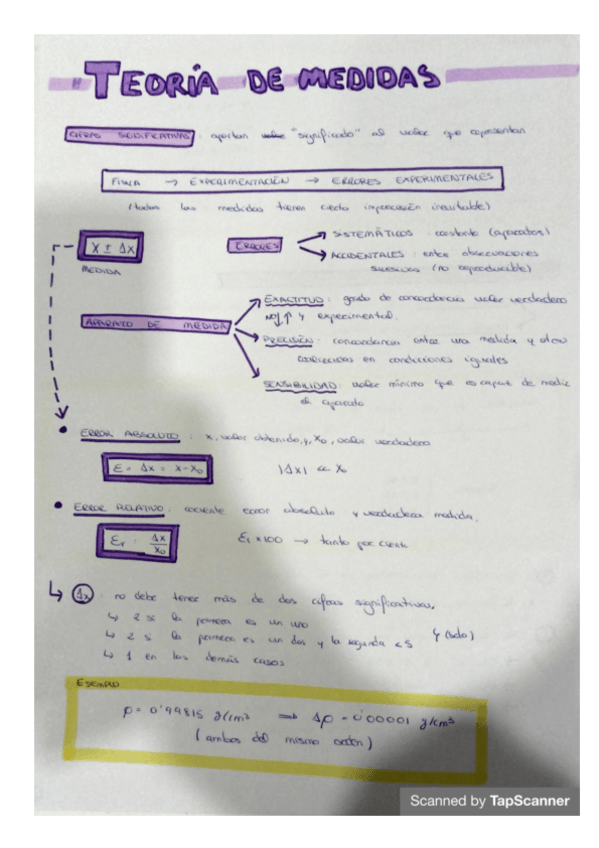 TEORÍA DE MEDIDAS
CIFRAS SIGNIFICATIVAS : aportan "significado" al valor que representan
FÍSICA → EXPERIMENTACIÓN → ERRORES EXPERIMENTALES
(todas las medidas tienen cierta imprecisión inevitable)
X ± Δx
MEDIDA
ERRORES
SISTEMÁTICOS : constante (aparatos)
ACCIDENTALES : entre observaciones
sucesivas (no reproducible)
APARATO DE MEDIDA
EXACTITUD : grado de concordancia valor verdadero
NO↓↑ y experimental.
PRECISIÓN : concordancia entre una medida y otras
en condiciones iguales
SENSIBILIDAD : valor mínimo que es capaz de medir
el aparato
• ERROR ABSOLUTO : x, valor obtenido, y, x₀, valor verdadero
ε = Δx = x - x₀ |Δx| << x₀
• ERROR RELATIVO : cociente error absoluto y verdadera medida.
εr = Δx/x₀ εr x 100 → tanto por ciento
↳ Δx : no debe tener más de dos cifras significativas.
↳ 2 si la primera es un uno
↳ 2 si la primera es un dos y la segunda < 5
↳ 1 en los demás casos
EJEMPLO
ρ = 0'99815 g/cm³ ⟹ Δρ = 0'00001 g/cm³
(ambos del mismo orden)
Scanned by TapScanner